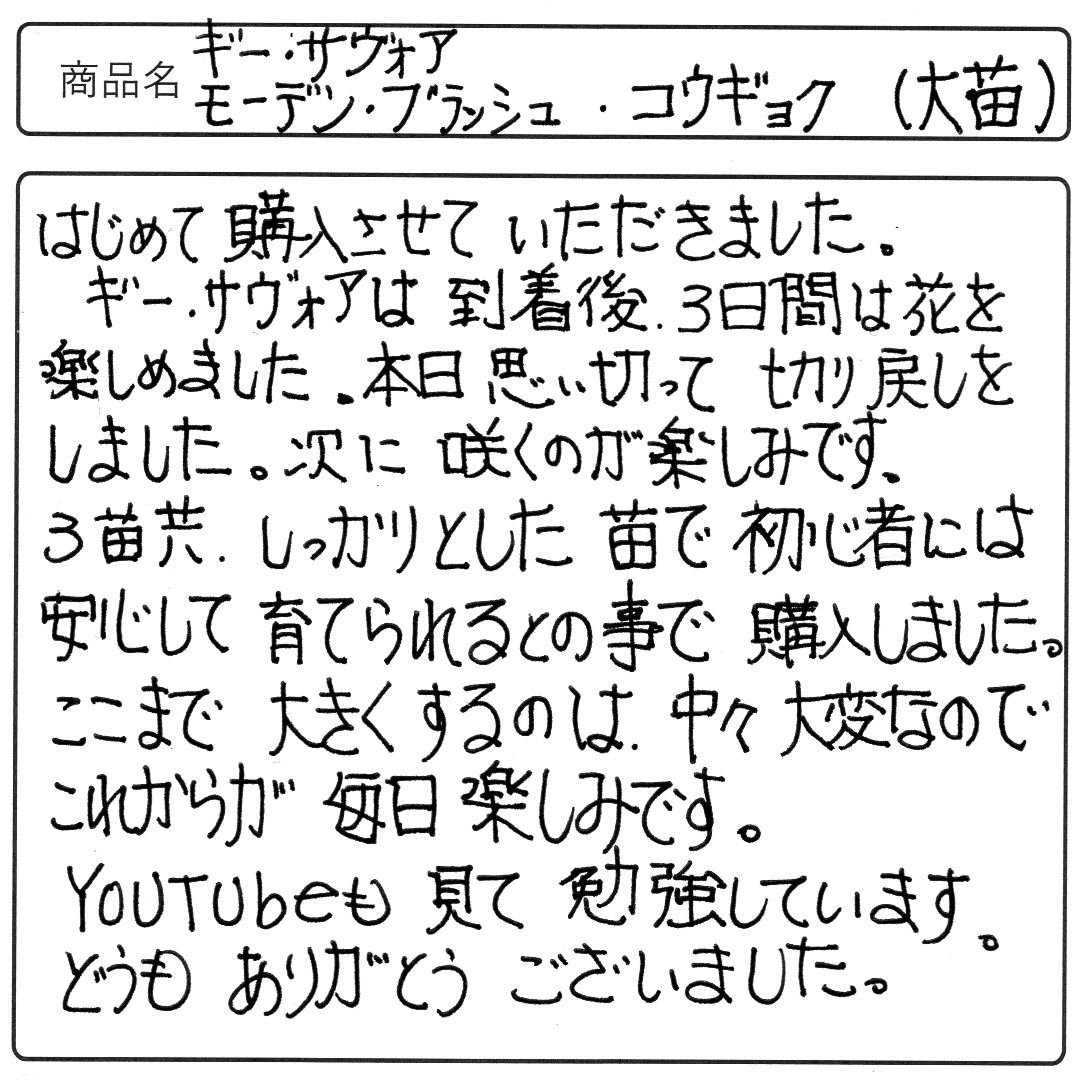 商品名
ギー・サヴォア
モーデン・ブラッシュ・コウギョク (大苗)
はじめて購入させていただきました。
ギー・サヴォアは到着後、3日間は花を
楽しめました。本日思い切って切り戻しを
しました。次に咲くのが楽しみです。
3苗共、しっかりとした苗で初心者には
安心して育てられるとの事で購入しました。
ここまで大きくするのは、中々大変なので
これからが毎日楽しみです。
YOUTUbeも見て勉強しています。
どうもありがとうございました。